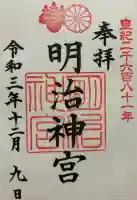 皇紀二千六百八十一年
奉拝
明治神宮
令和三年十二月九日
明治神宮